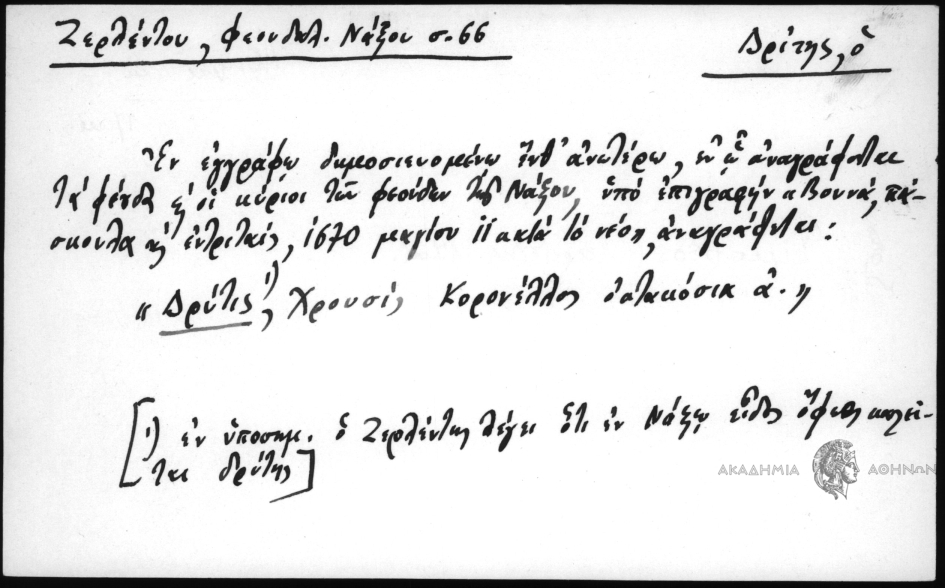 Ζερλέντου, Φεουδαλ. Νάξου σ. 66
Δρίτης, ὁ
Ἐν ἐγγράφῳ δημοσιευομένῳ ἔνθ' ἀνωτέρω, ἐν ᾧ ἀναγράφονται
τά φέουδα ἤ οἱ κύριοι τῶν φεούδων τῆς Νάξου, ὑπό ἐπιγραφήν «Βουνά, πά-
σκουλα καί ἐντριταίς, 1670 μαγίου 11 κατά τό νέο», ἀναγράφεται:
« Δρύτις 1), Χρουσής Κορονέλλος ἀ. »
[1) ἐν ὑποσημ. ὁ Ζερλέντης λέγει ὅτι ἐν Νάξῳ εἶδος ὄφεως καλεῖ-
ται δρύτης]
ΑΚΑΔΗΜΙΑ ΑΘΗΝΩΝ